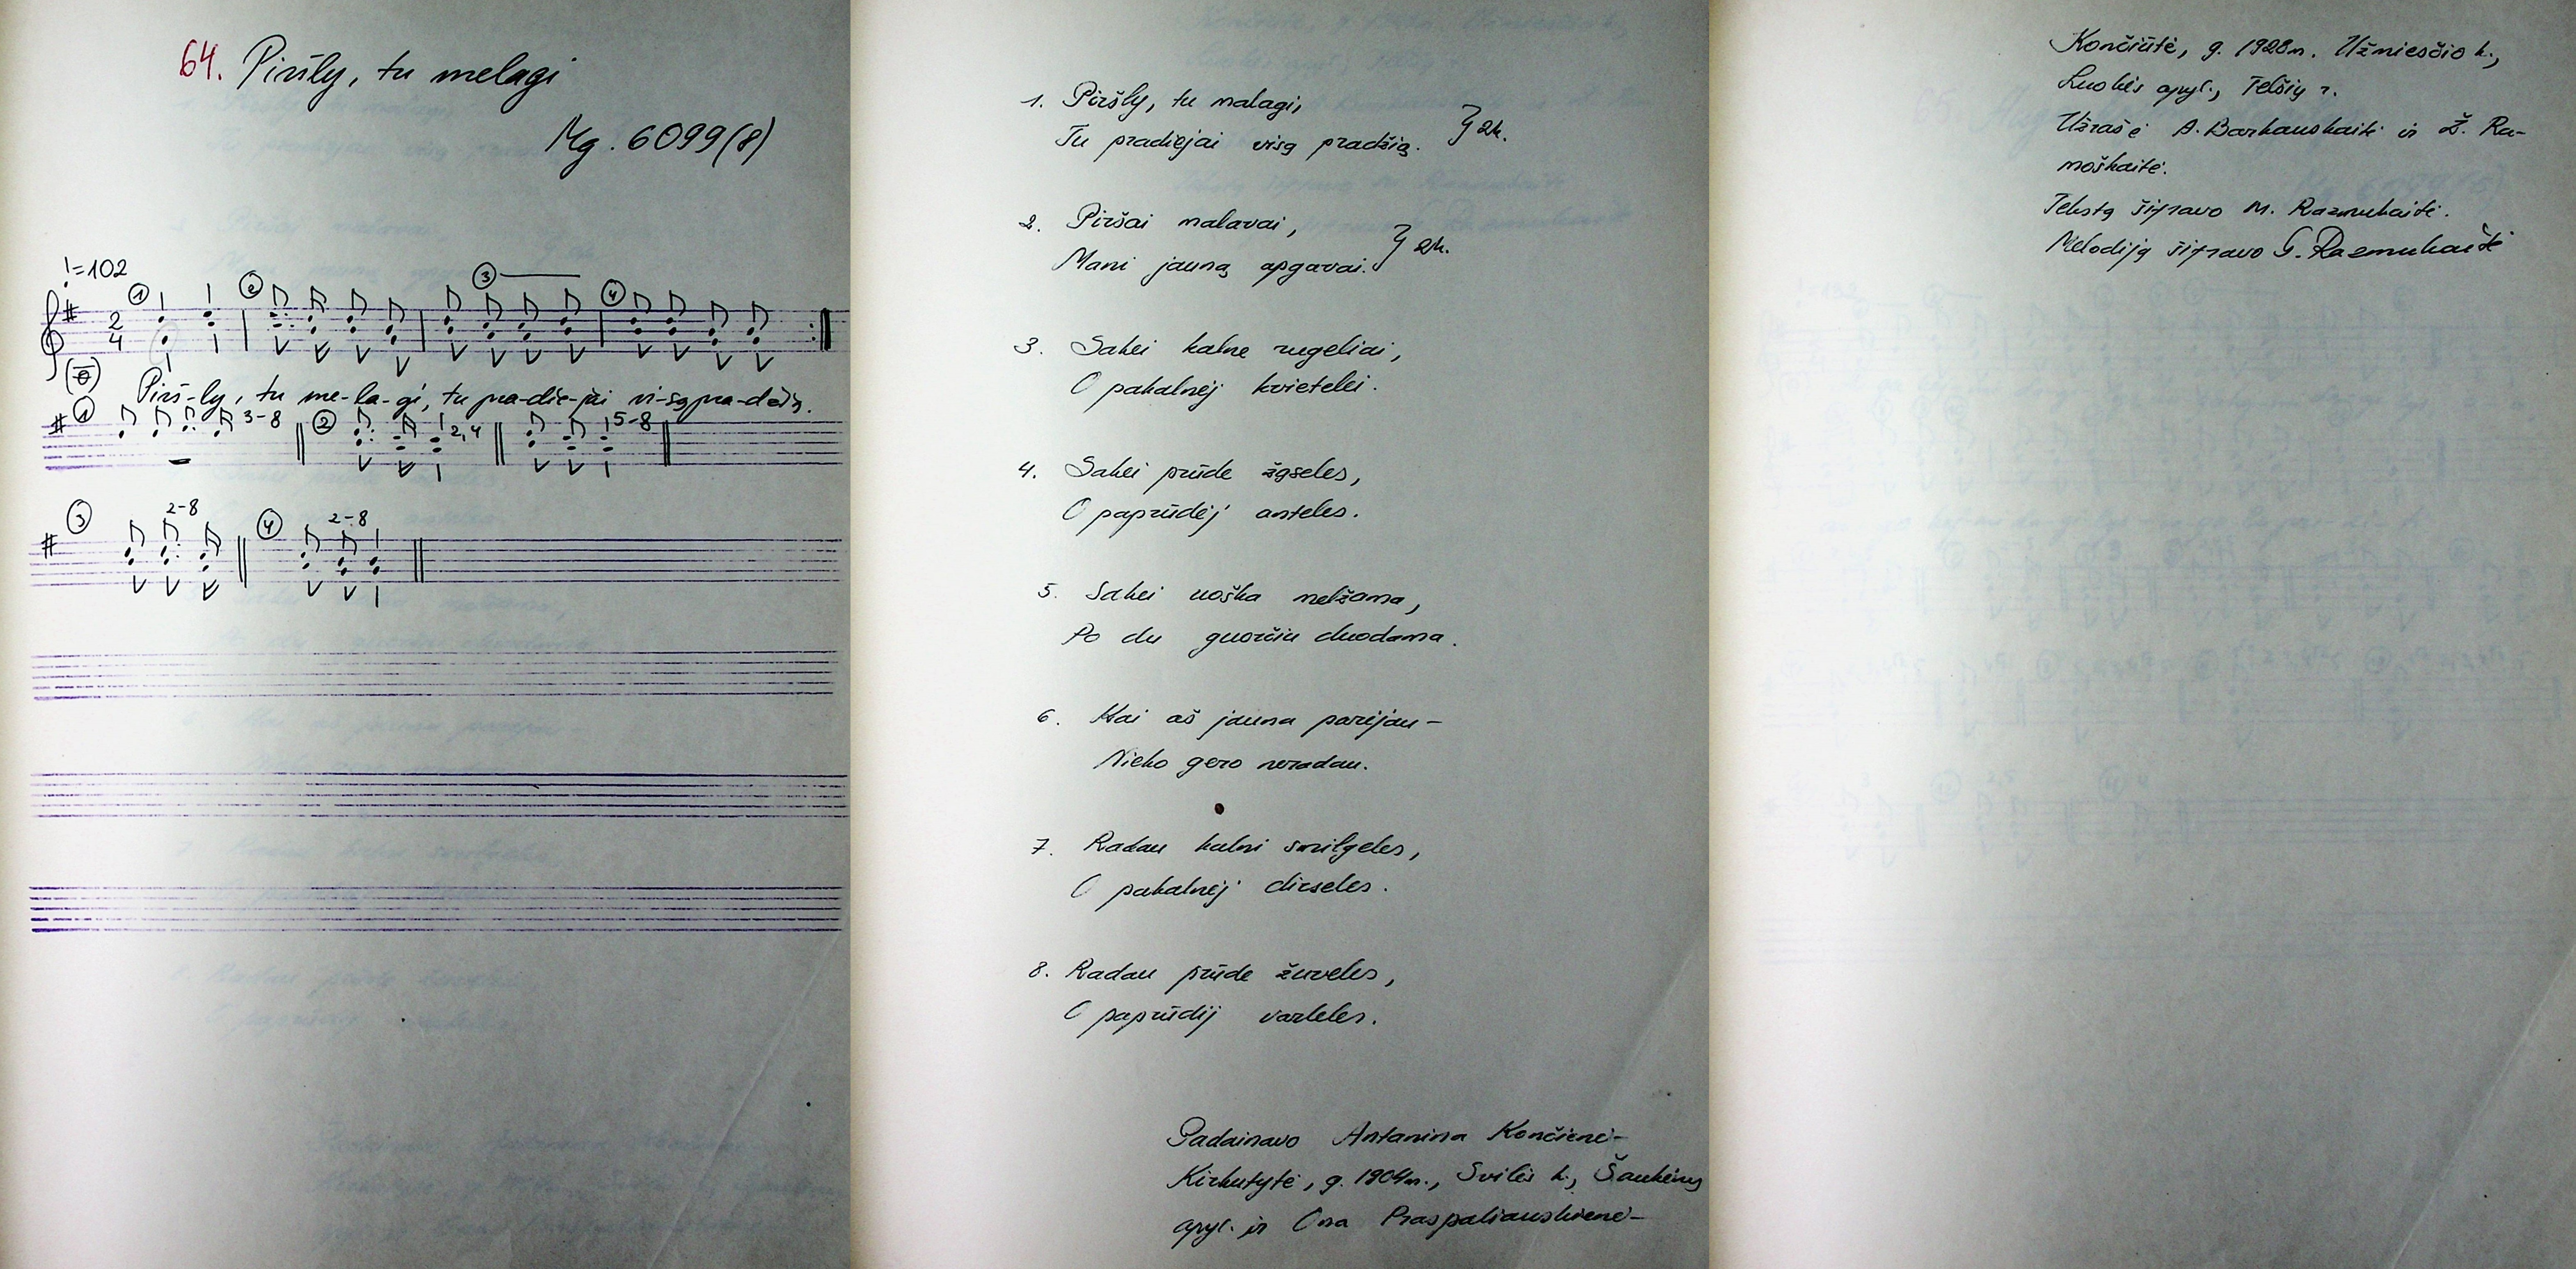 64. Piršly, tu melagi
Mg. 6099(8)
♩=102
① ② ③ ④
2
4
Pirš-ly, tu me-la-gi, tu pra-die-jai vi-są pra-džią.
① 3-8 ② 2,4 5-8
③ 2-8 ④ 2-8
1. Piršly, tu malagi,
Tu pradiejai visą pradžią. } 2k.
2. Piršai malavai,
Mani jauną apgavai. } 2k.
3. Sakei kalne rugeliai,
O pakalnėj kvietelei.
4. Sakei prūde žąseles,
O paprūdėj anteles.
5. Sakei uoška melžama,
Po du guorčiu duodama.
6. Kai aš jauna parėjau –
Nieko gero neradau.
7. Radau kalni smilgeles,
O pakalnėj dirseles.
8. Radau prūde žuveles,
O paprūdij varleles.
Padainavo Antanina Končienė-
Kirkutytė, g. 1904m., Svilės k., Šaukėnų
apyl. ir Ona Praspaliauskienė-
Končiūtė, g. 1928m. Užmiesčio k.,
Luokės apyl., Telšių r.
Užrašė A. Barkauskaitė ir Ž. Ra-
moškaitė.
Tekstą šifravo M. Razmukaitė.
Melodiją šifravo G. Razmukaitė